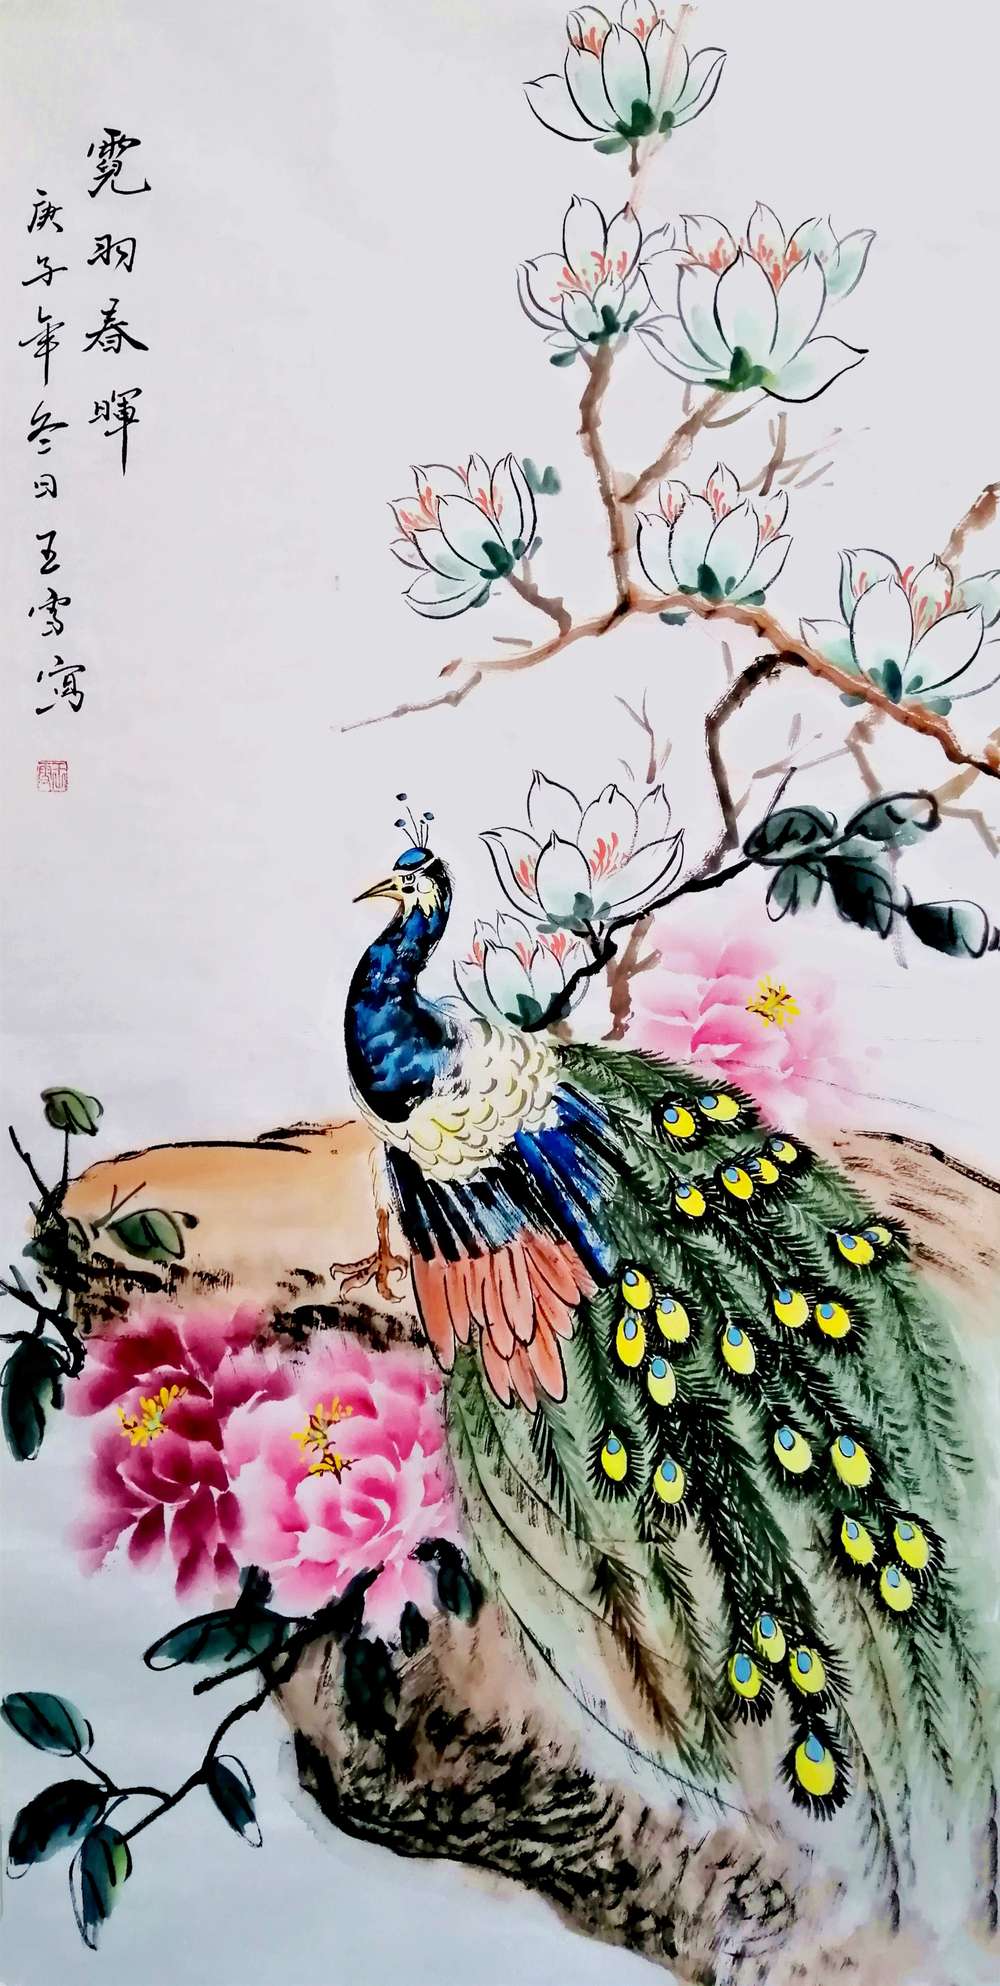 霓羽春暉
庚子年冬日王雪寫